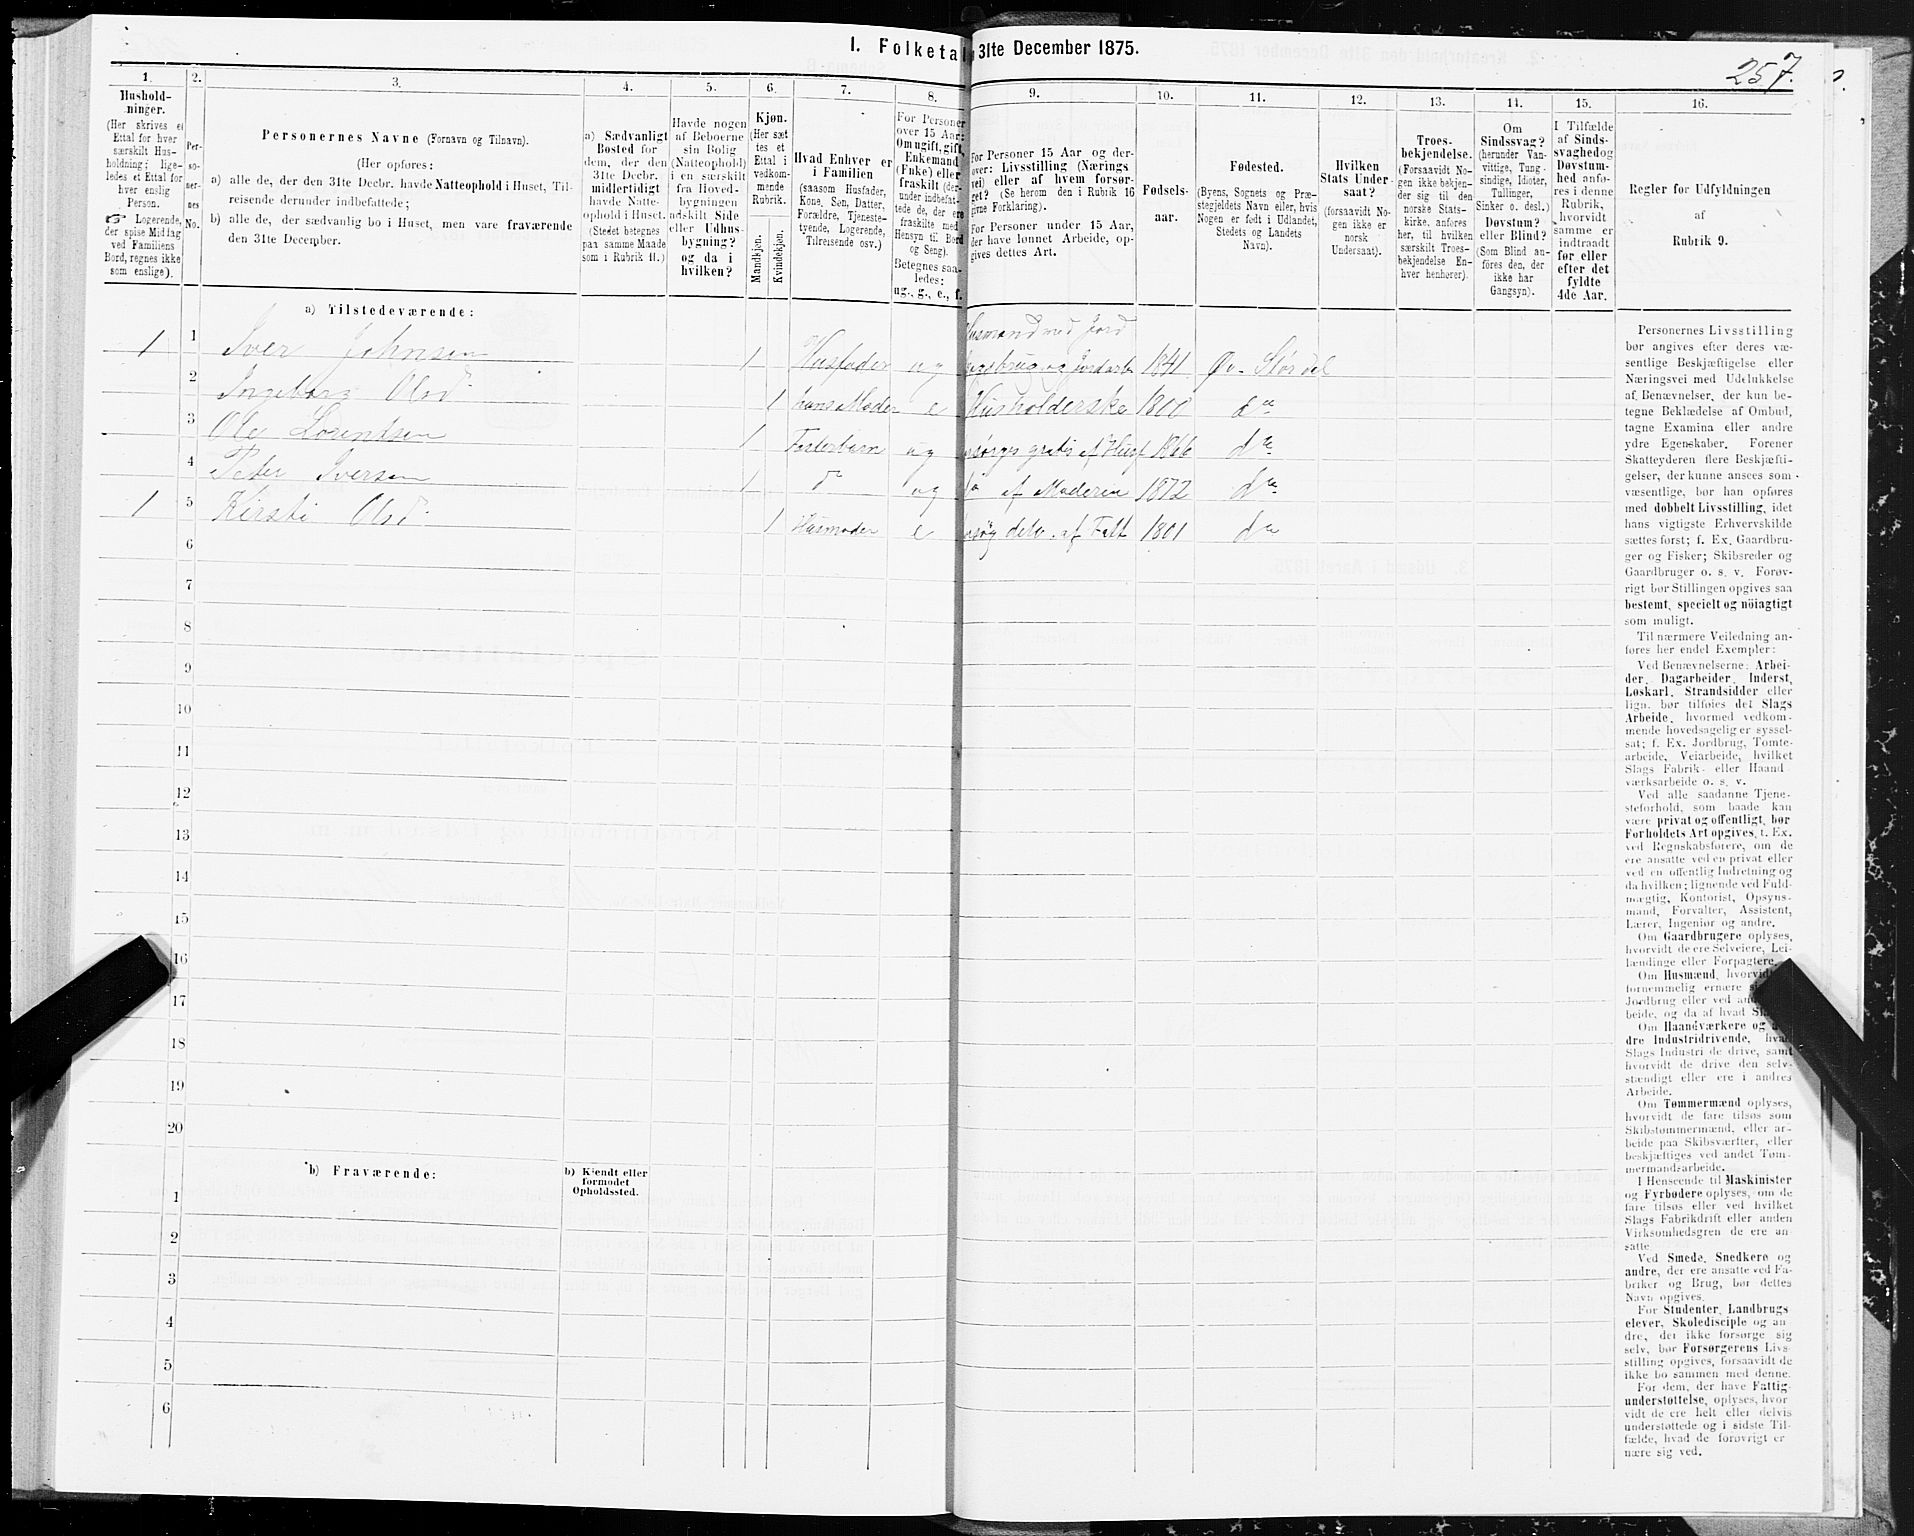 I. Folketal 31te December 1875.
257.
1. 2. 3. 4. 5. 6. 7. 8. 9. 10. 11. 12. 13. 14. 15. 16.
Hushold-
ninger.
(Her skrives et
Ettal for hver
særskilt Hus-
holdning; lige-
ledes et Ettal for
hver enslig
Person.
☞ Logerende,
der spise Middag
ved Familiens
Bord, regnes ikke
som enslige).
Per-
so-
ner-
nes
No.
Personernes Navne (Fornavn og Tilnavn).
(Her opføres:
a) alle de, der den 31te Decbr. havde Natteophold i Huset, Til-
reisende derunder indbefattede;
b) alle de, der sædvanlig bo i Huset, men vare fraværende
den 31te December.
a) Sædvanligt
Bosted for
dem, der den
31te Decbr.
midlertidigt
havde Natte-
ophold i Huset.
(Stedet betegnes
paa samme Maade
som i Rubrik 11.)
Havde nogen
af Beboerne
sin Bolig
(Natteophold)
i en særskilt
fra Hoved-
bygningen
adskilt Side
eller Udhus-
bygning?
og da i
hvilken?
Kjøn.
(Her sæt
tes et
Ettal i
vedkom-
mende
Rubrik.
Mandkjøn.
Kvindekjøn.
Hvad Enhver er
i Familien
(saasom Husfader,
Kone, Søn, Datter,
Forældre, Tjeneste-
tyende, Logerende,
Tilreisende osv.)
For Personer
over 15 Aar:
Om ugift, gift,
Enkemand
(Enke) eller
fraskilt (der-
under indbefat-
tede de, der ere
fraskilte med
Hensyn til Bord
og Seng).
Betegnes saa-
ledes:
ug., g., e., f.
For Personer 15 Aar og der-
over: Livsstilling (Nærings
vei) eller af hvem forsør-
get? (Se herom den i Rubrik 16
givne Forklaring).
For Personer under 15 Aar,
der have lønnet Arbeide, op-
gives dettes Art.
Fødsels-
aar.
Fødested.
(Byens, Sognets og Præ-
stegjeldets Navn eller, hvis
Nogen er født i Udlandet,
Stedets og Landets
Navn).
Hvilken
Stats Under
saat?
(forsaavidt No-
gen ikke er
norsk
Undersaat).
Troes-
bekjendelse.
(Forsaavidt No-
gen ikke bekjen-
der sig til den
norske Stats-
kirke, anføres
her, til hvilken
særskilt Troes-
bekjendelse En-
hver henhører).
Om
Sindssvag?
(herunder Van-
vittige, Tung-
sindige, Idioter,
Tullinger,
Sinker o. desl.)
Døvstum?
eller Blind?
(Som Blind an-
føres den, der
ikke har
Gangsyn).
I Tilfælde
af Sinds-
svaghed og
Døvstum-
hed anfø-
res i denne
Rubrik,
hvorvidt
samme er
indtraadt
før eller
efter det
fyldte
4de Aar.
Regler for Udfyldningen
af
Rubrik 9.
a) Tilstedeværende:
Husmand med Jord
1 1 Iver Johnsen 1 Husfader ug 1841 Øv. Størdal
2 Ingeborg Olsd. 1 hans Moder e Husholderske 1800 do
3 Ole Lorentsen 1 Fosterbarn ug gratis af Husf 1866 do
4 Peter Iversen 1 do ug do af Moderen 1872 do
1 5 Kirsti Olsd. 1 Husmoder e delv. af Fatt 1801 do
6
7
8
9
10
11
12
13
14
15
16
17
18
19
20
b) Fraværende:
b) Kjendt eller
formodet
Opholdssted.
1
2
3
4
5
6
Personernes Livsstilling
bør angives efter deres væ-
sentlige Beskjæftigelse eller
Næringsvei med Udelukkelse
af Benævnelser, der kun be-
tegne Beklædelse af Ombud,
tagne Examina eller andre
ydre Egenskaber. Forener
Skatteyderen flere Beskjæfti-
gelser, der kunne ansees som
væsentlige, bør han opføres
med dobbelt Livsstilling, idet
hans vigtigste Erhvervskilde
sættes først; f. Ex. Gaardbru-
ger og Fisker; Skibsreder og
Gaardbruger o. s. v. Forøv-
rigt bør Stillingen opgives saa
bestemt, specielt og nöiagtigt
som muligt.
Til nærmere Veiledning an-
føres her endel Exempler:
Ved Benævnelserne: Arbei-
der, Dagarbeider, Inderst,
Løskarl, Strandsidder eller
lign. bør tilføies det Slags
Arbeide, hvormed vedkom-
mende hovedsagelig er syssel-
sat; f. Ex. Jordbrug, Tomte-
arbeide, Veiarbeide, hvilket
Slags Fabrik- eller Haand-
værksarbeide o. s. v.
Ved alle saadanne Tjene-
steforhold, som baade kan
være privat og offentligt, bør
Forholdets Art opgives, t. Ex.
ved Regnskabsførere, om de
ere ansatte ved en privat eller
ved en offentlig Indretning og
da hvilken; lignende ved Fuld-
mægtig, Kontorist, Opsyns-
mand, Forvalter, Assistent,
Lærer, Ingeniør og andre.
Om Gaardbrugere oplyses,
hvorvidt de ere Selveiere, Lei-
lændinge eller Forpagtere.
Om Husmænd, hvorvidt
fornemmelig ernære
Jordbrug eller ved
beide, og da af hvad
Om Haandværkere og
dre Industridrivende, hvad
Slags Industri de drive, samt
hvorvidt de drive den selv-
stændigt eller ere i andres
Arbeide.
Om Tømmermænd oplyses,
hvorvidt de fare tilsøs som
Skibstømmermænd, eller ar-
beide paa Skibsværfter, eller
beskjæftiges ved andet Tøm-
mermandsarbeide.
I Henseende til Maskinister
og Fyrbødere oplyses, om de
fare tilsøs eller ved hvilket
Slags Fabrikdrift eller anden
Virksomhedsgren de ere an-
satte.
Ved Smede, Snedkere og
andre, der ere ansatte ved Fa-
briker og Brug, bør dettes
Navn opgives.
For Studenter, Landbrugs
elever, Skoledisciple og an-
dre, der ikke forsørge sig
selv, bør Forsørgerens Livs-
stilling opgives, forsaavidt de
ikke bo sammen med denne.
For dem, der have Fattig-
understøttelse, oplyses, hvor-
vidt de ere helt eller delvis
understøttede og i sidste Til-
fælde, hvad de forøvrigt er
nære sig ved.